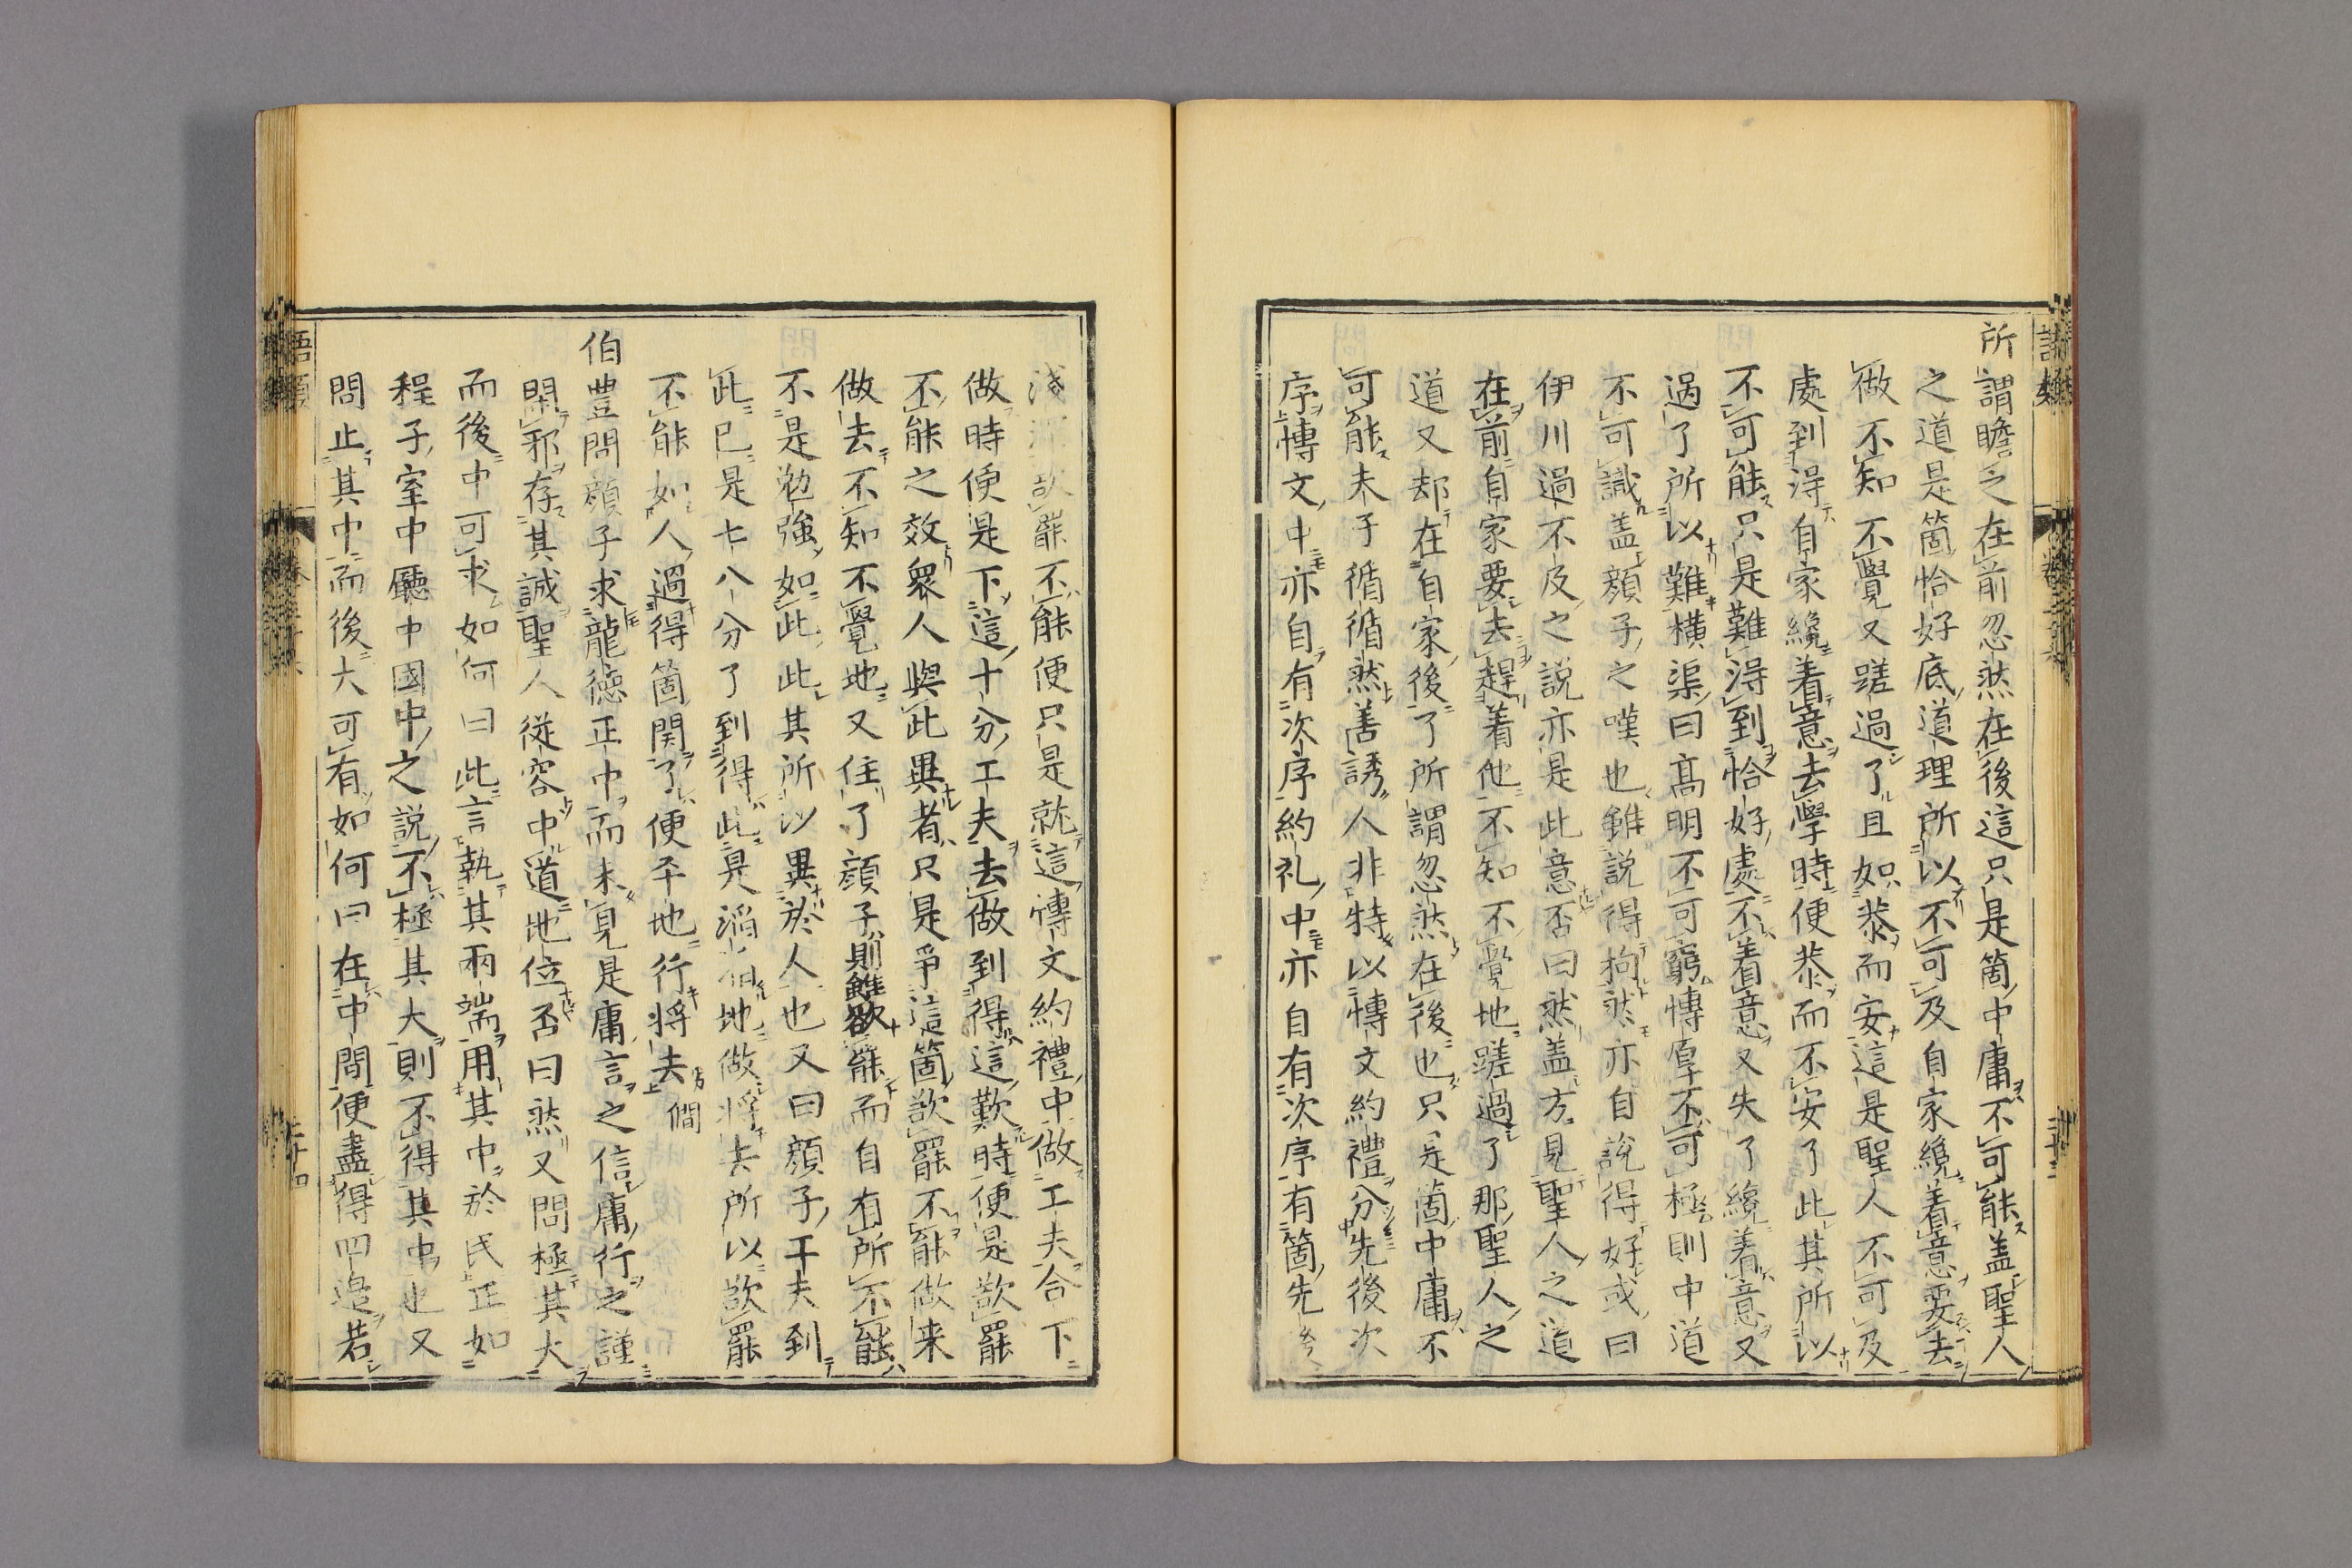 所謂瞻之在前忽然在後這只是箇中庸不可能盖聖人
之道是箇恰好底道理所以不可及自家纔着意要去
做不知不覺又蹉過了且如恭而安這是聖人不可及
處到得自家纔着意去學時便恭而不安了此其所以
不可能只是難得到恰好處不着意又失了纔着意又
過了所以難橫渠曰髙明不可窮愽厚不可極則中道
不可識盖顔子之嘆也雖說得拘然亦自說得好或曰
伊川過不及之説亦是此意否曰然盖方見聖人之道
在前自家要去趕着他不知不覺地蹉過了那聖人之
道又却在自家後了所謂忽然在後也只是箇中庸不
可能夫子循循然善誘人非特以愽文約禮分先後次
序愽文中亦自有次序約礼中亦自有次序有箇先後
淺深欲罷不能便只是就這愽文約禮中做工夫合下
做時便是下這十分工夫去做到得這歎時便是欲罷
不能之效衆人與此異者只是爭這箇欲罷不能做来
做去不知不覺地又住了顔子則雖欲罷而自有所不能
不是勉強如此此其所以異於人也又曰顔子工夫到
此已是七八分了到得此是滔滔地做將去所以欲罷
不能如人過得箇関了便平地行將去 㽦 僴
伯豊問顔子求龍德正中而未見是庸言之信庸行之謹
閑邪存其誠聖人從容中道地位否曰然又問極其大
而後中可求如何曰此言執其兩端用其中於民正如
程子室中廳中國中之説不極其大則不得其中也又
問止其中而後大可有如何曰在中間便盡得四邉若
語類
三十三
語類
三十四